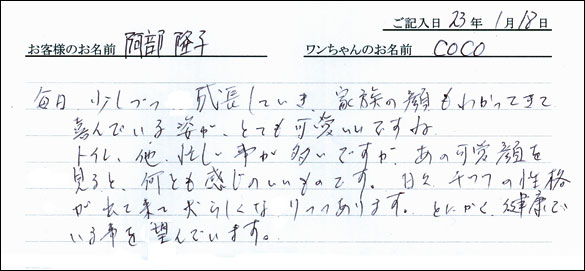 ご記入日 23年 1月18日
お客様のお名前 阿部 隆子 ワンちゃんのお名前 COCO
毎日、少しづつ 成長していき、家族の顔もわかってきて
喜んでいる姿が、とても可愛いいですね
トイレ、他、忙しい事が多いですが、あの可愛顔を
見ると、何とも感じのいいものです。日々、チワワの性格
が出て来て犬らしくなりつつあります。とにかく健康で
いる事を望んでいます。